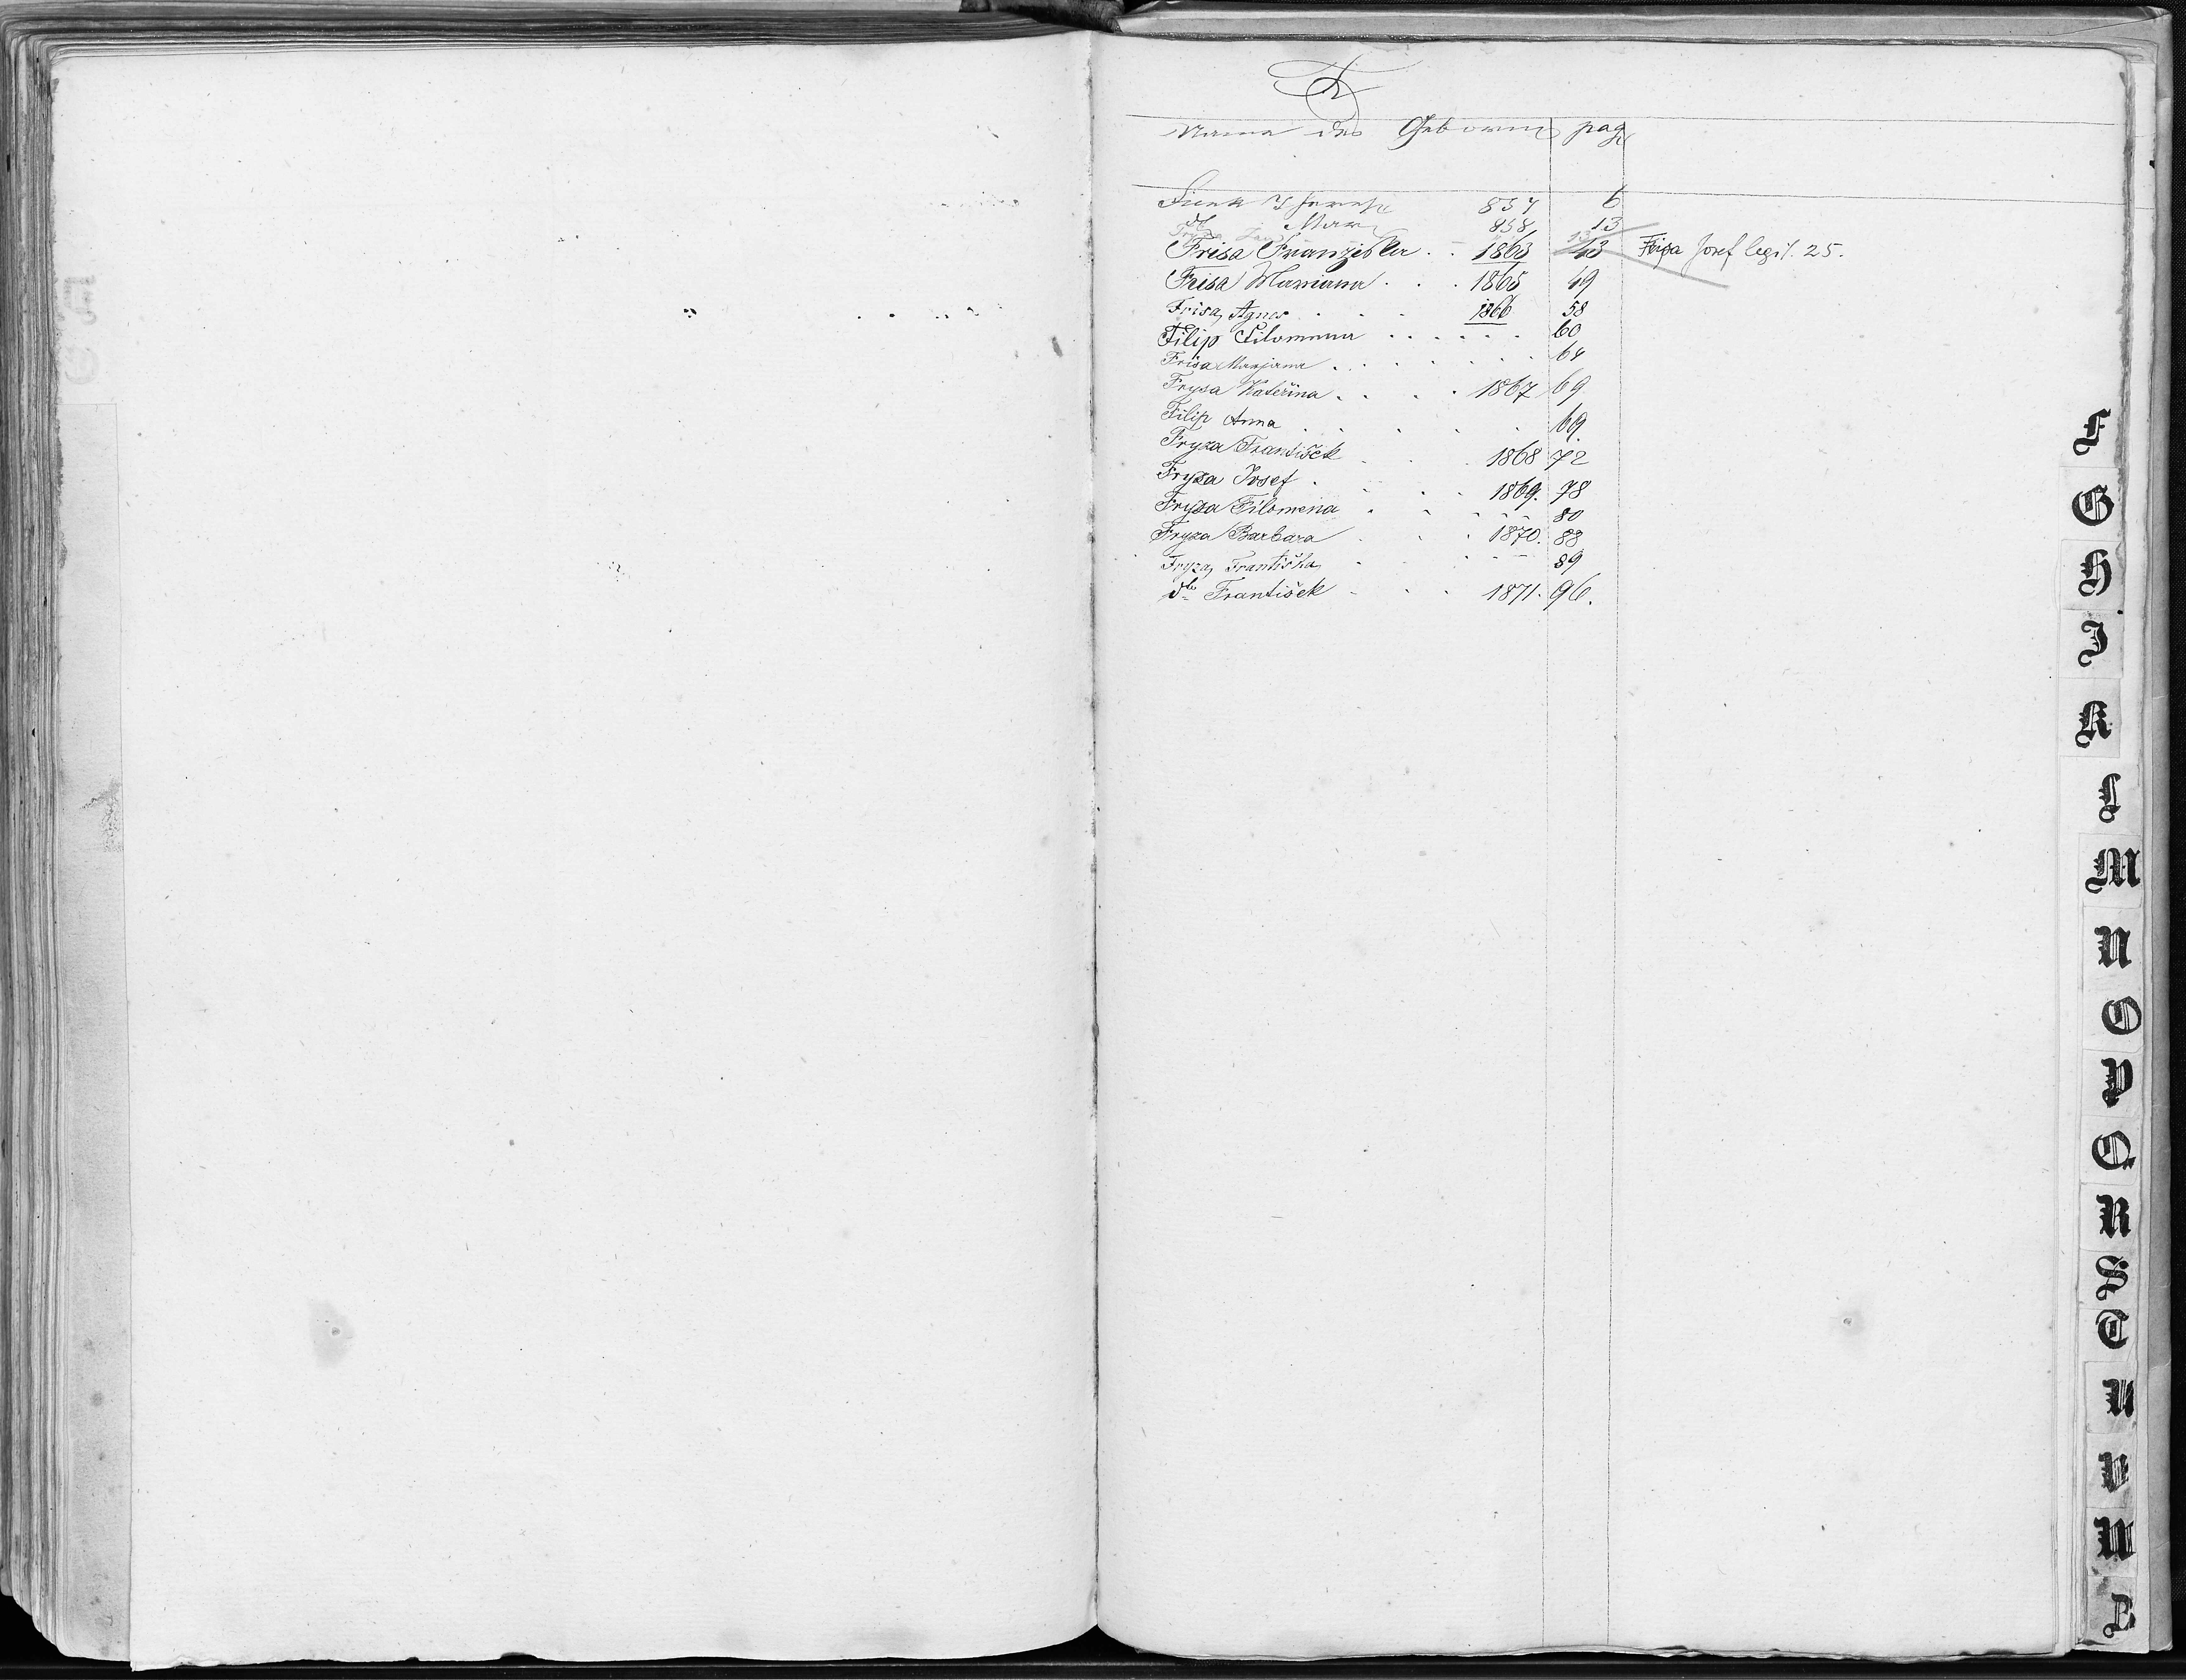 F
Name des Gebornen pag
Theresi 857 6
dto Mari 858 13
Fryza 13
Frisa Franziska . . 1863 43 Frisa Josef legit. 25.
Frisa Mariana . . . 1865 49
Frisa Agnes . . . 1866 58
Filip Filomena . . . . . . 60
Frisa Marjana . . . . . . 64
Frysa Kateřina . . . . 1867 69
Filip Anna . . . . . 69.
Fryza František . . . 1868 72
Fryza Josef . . . . 1869. 78
Fryza Filomena . . . . . 80
Fryza Barbara . . . 1870. 88
Fryza Františka . . . - 89
dto František - . . 1871. 96.
F
G
H
I
K
L
M
N
O
P
Q
R
S
T
U
V
W
Z